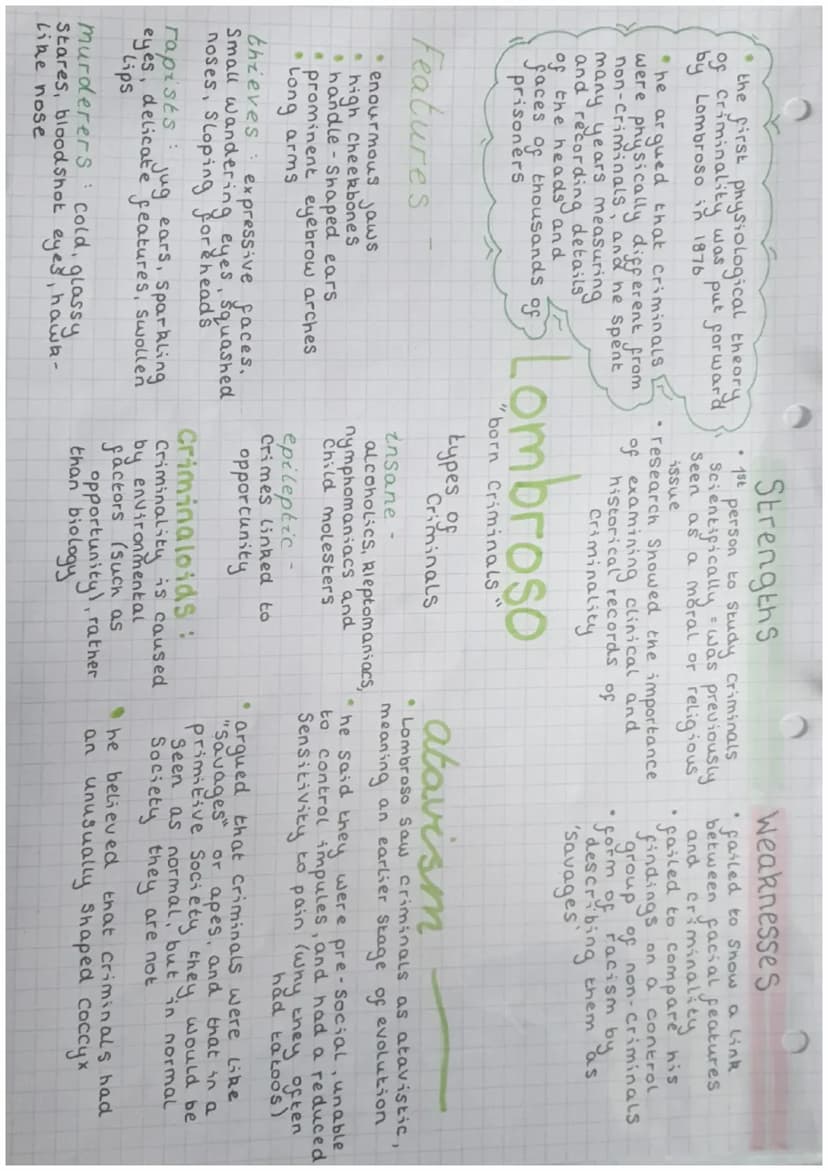 • the first physiological theory
of criminality was put forward
by Lombroso in 1876
• he argued that criminals
were physically different from
non-criminals, and he spent
many years measuring
and recording details
of the heads and
faces of thousands of
prisoners
Strengths
• 1st person to study criminals
scientifically = was previously
seen as a moral or religious
issue
• research showed the importance
of examining clinical and
historical records of
criminality
Weaknesses
• failed to show a link
between facial features
and criminality
• failed to compare his
findings on a control
group of non-criminals
• form of racism by
describing them as
'savages'
Lombroso
"born criminals"
Features -
• enourmous jaws
• high cheekbones
• handle-shaped ears
• prominent eyebrow arches
• long arms
thieves : expressive faces,
small wandering eyes, squashed
noses, sloping foreheads
rapists : jug ears, sparkling
eyes, delicate features, swollen
lips
murderers : cold, glassy
stares, bloodshot eyes, hawk-
like nose
types of
criminals
insane -
alcoholics, kleptomaniacs,
nymphomaniacs and
child molesters
epileptic -
crimes linked to
opportunity
criminaloids :
criminality is caused
by environmental
factors (such as
opportunity), rather
than biology
atavism
• Lombroso saw criminals as atavistic,
meaning an earlier stage of evolution
• he said they were pre-social, unable
to control impules, and had a reduced
sensitivity to pain (why they often
had tatoos)
• argued that criminals were like
"savages" or apes, and that in a
primitive society they would be
seen as normal, but in normal
society they are not
• he believed that criminals had
an unusually shaped coccyx